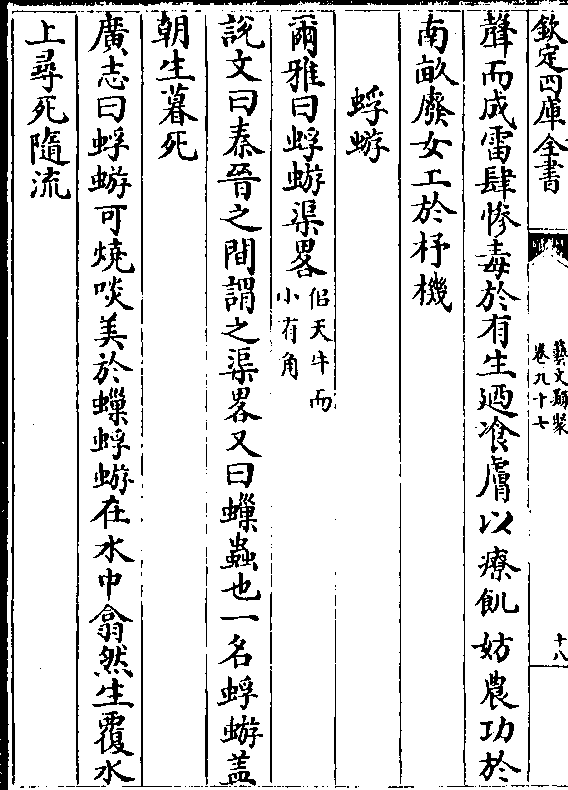 欽定四庫全書
藝文類聚
卷九十七
十八
聲而成雷肆慘毒於有生迺飡膚以療飢妨農功於
南畝廢女工於杼機
蜉蝣
爾雅曰蜉蝣渠畧
佀天牛而
小有角
説文曰秦晉之間謂之渠畧又曰蠟蟲也一名蜉蝣盖
朝生暮死
廣志曰蜉蝣可燒啖美於蠟蜉蝣在水中翕然生覆水
上尋死隨流